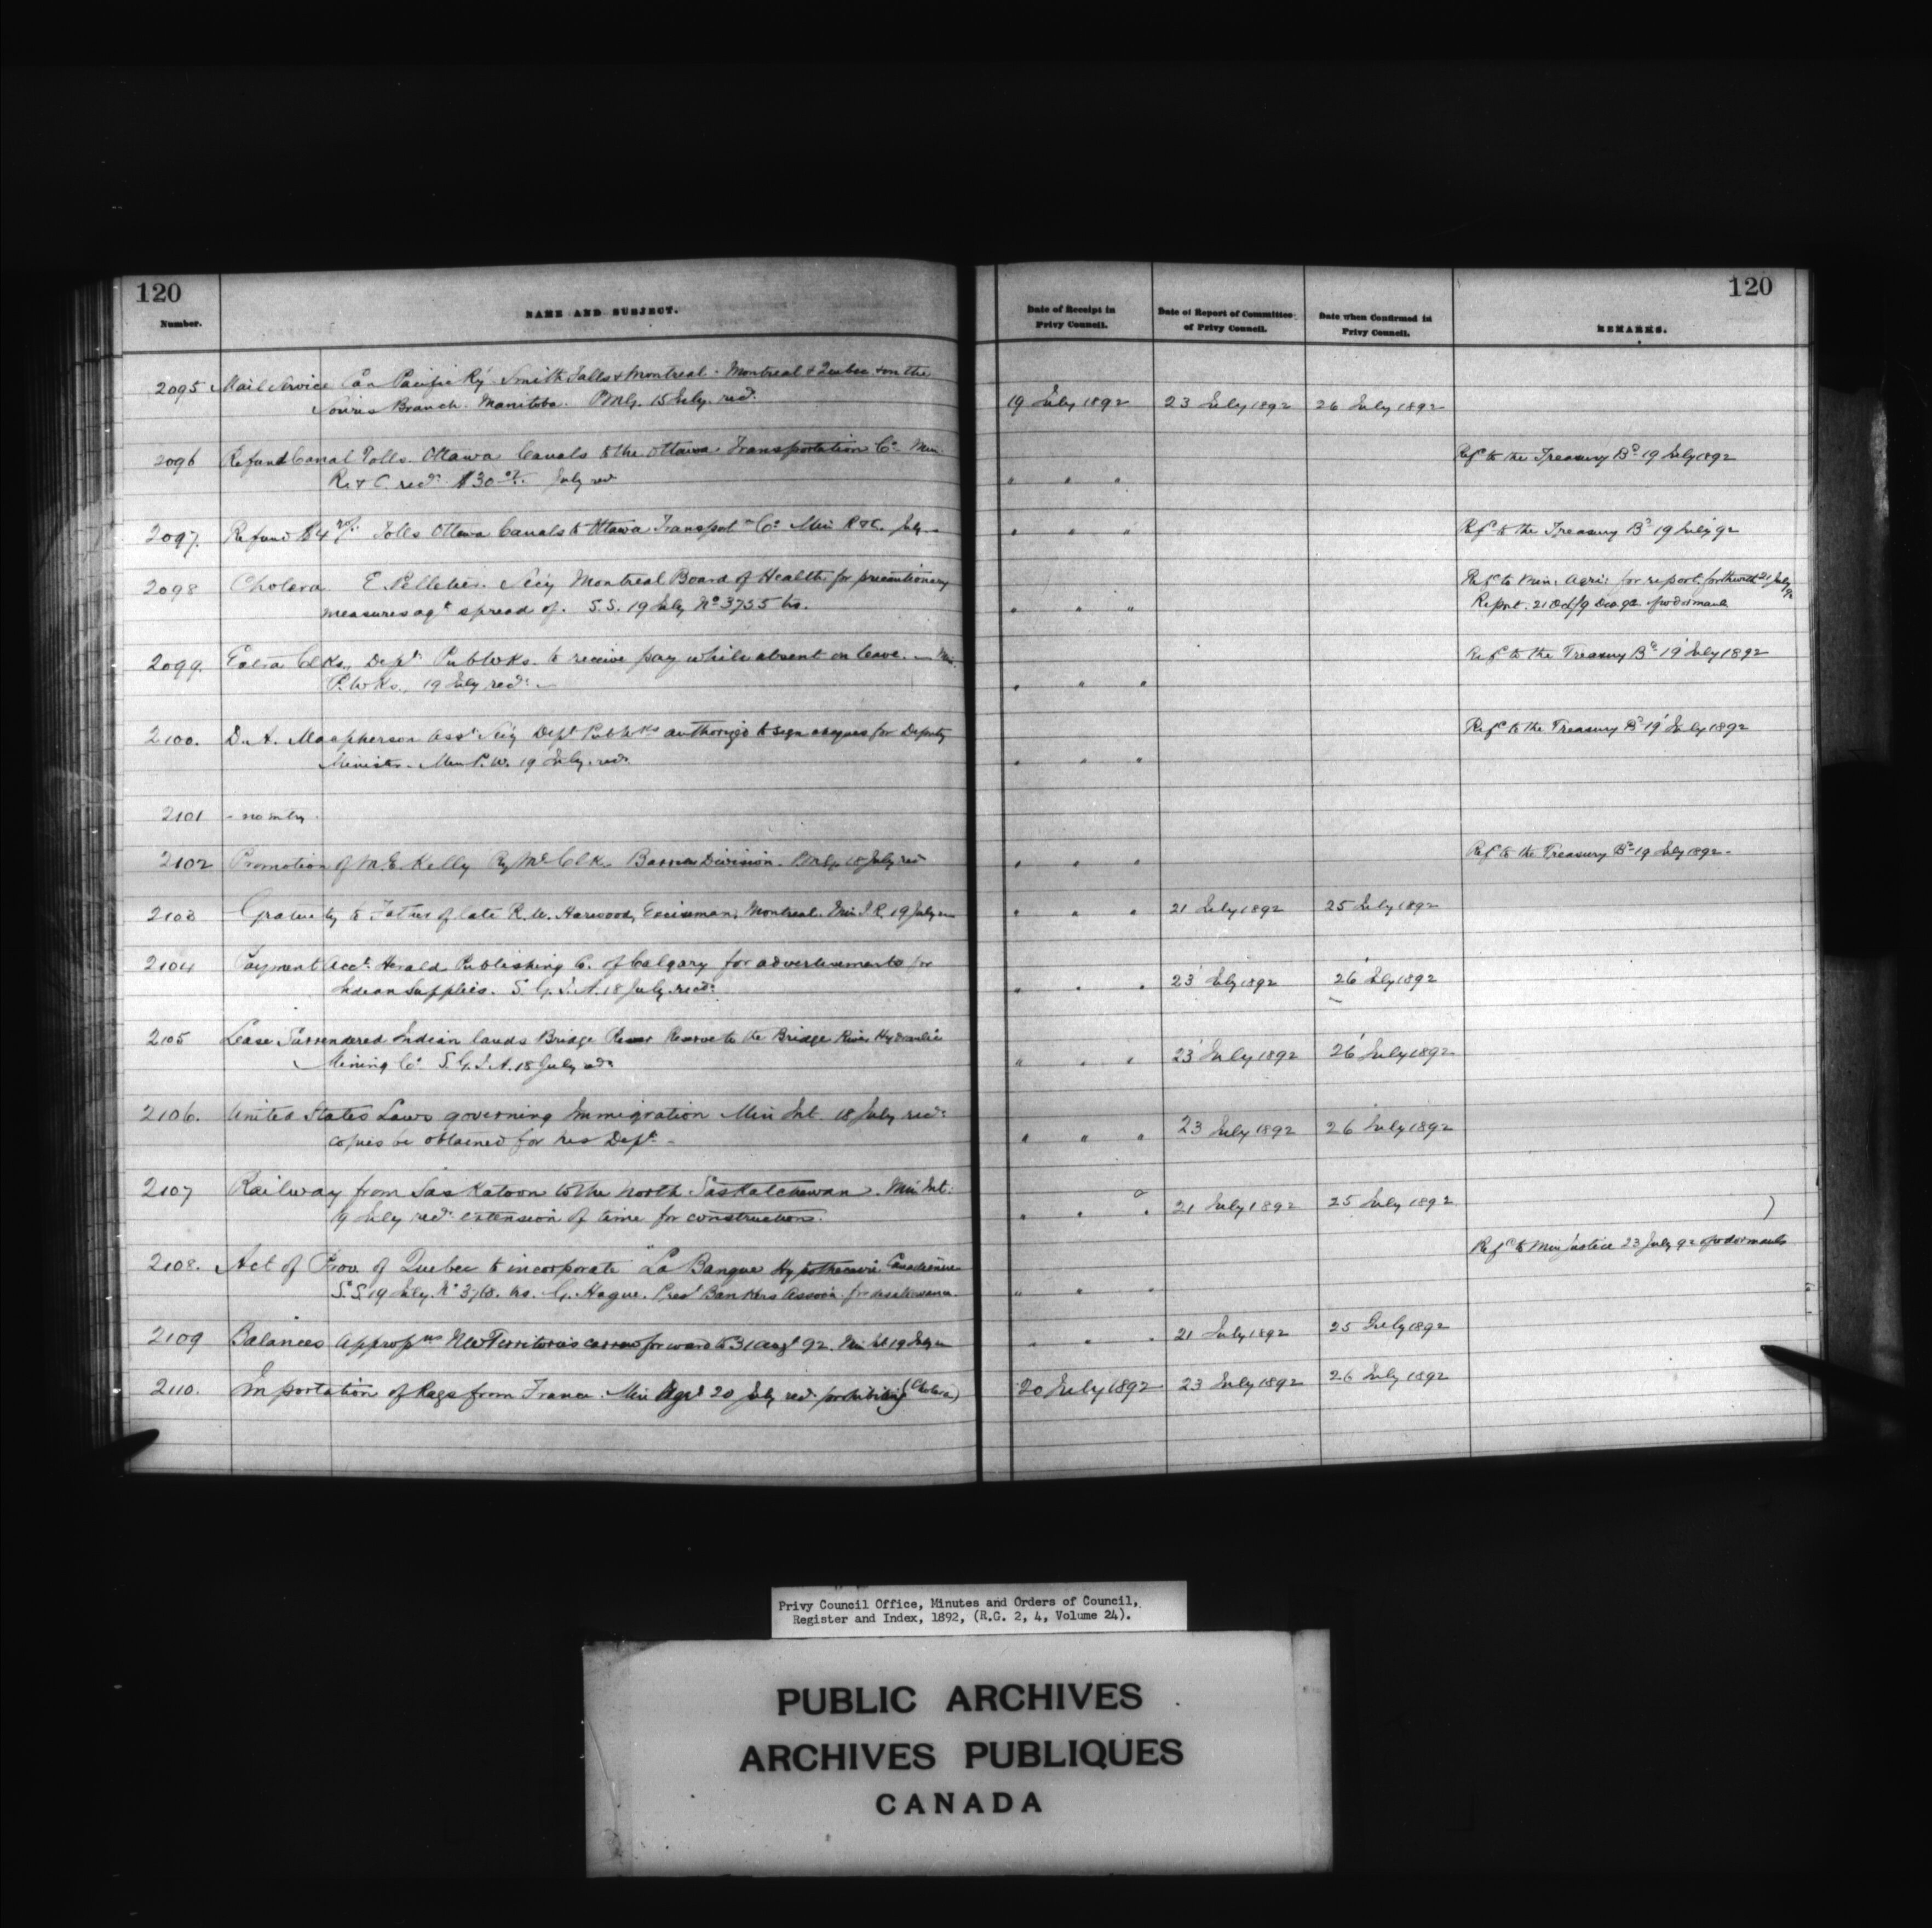 120
120
Number.
NAME AND SUBJECT.
Date of Receipt in
Privy Council.
Date of Report of Committee
of Privy Council.
Date when Confirmed in
Privy Council.
REMARKS.
2095 Mail Service Can Pacific Ry Smith Falls & Montreal - Montreal & Quebec & on the
Souris Branch. Manitoba. PMG. 15 July recd. 19 July 1892 23 July 1892 26 July 1892
2096 Refund Canal Tolls Ottawa Canals to the Ottawa Transportation Co. Min Refd to the Treasury Bd 19 July 1892
R. & C. recds $30 July recd " " "
2097. Refund Tolls Ottawa Canals to Ottawa Transport Co. Min R & C. July " " " Refd to the Treasury Bd 19 July 92
2098 Cholera. E. Pelletier. Secy Montreal Board of Health for precautionary Refd to Min. Agri: for report forthwith 21 July 92
measures agt spread of. S.S. 19 July No 3755 trs. " " " Report. 21 Oct/9 Dec 92
2099. Extra Clks., Dept Pub Wks. to receive pay while absent on leave. - Min. Refd to the Treasury Bd 19 July 1892
P. Wks., 19 July recds " " "
2100. D. A. Macpherson Asst Secy Dept Pub Wks authorized to sign cheques for Deputy Refd to the Treasury Bd 19 July 1892
Minister. Min P. W. 19 July. recds " " "
2101 - no entry -
2102 Promotion of M. E. Kelly Ry Ml Clk. Barrie Division. PMG. 18 July recd " " " Refd to the Treasury Bd 19 July 1892.
2103 Gratuity to Father of late R. W. Harwood, Exciseman, Montreal. Min I. R. 19 July " " " 21 July 1892 25 July 1892
2104 Payment Acct. Herald Publishing C. of Calgary for advertisements for
Indian Supplies. S. G. I. A. 18 July. recds " " " 23 July 1892 26 July 1892
2105 Lease Surrendered Indian lands Bridge River Reserve to the Bridge River Hydraulic
Mining Co. S. G. I. A. 18 July recds " " " 23 July 1892 26 July 1892
2106. United States Laws governing Immigration Min Int. 18 July recds
copies be obtained for his Dept. - " " " 23 July 1892 26 July 1892
2107 Railway from Saskatoon to the North Saskatchewan. Min Int:
19 July recds extension of time for construction. " " " 21 July 1892 25 July 1892
2108. Act of Prov. of Quebec to incorporate "La Banque Hypothecaire Canadienne Refd to Min Justice 23 July 92
S.S. 19 July. No trs. G. Hague. Prest Bankers Assocn for disallowance. " " "
2109 Balances Appropns NW Territories carried forward to 31 Augt 92. Min Int 19 July " " " 21 July 1892 25 July 1892
2110. Importation of Rags from France. Min Agr 20 July recds prohibiting (Cholera) 20 July 1892 23 July 1892 26 July 1892
Privy Council Office, Minutes and Orders of Council,
Register and Index, 1892, (R.G. 2, 4, Volume 24).
PUBLIC ARCHIVES
ARCHIVES PUBLIQUES
CANADA